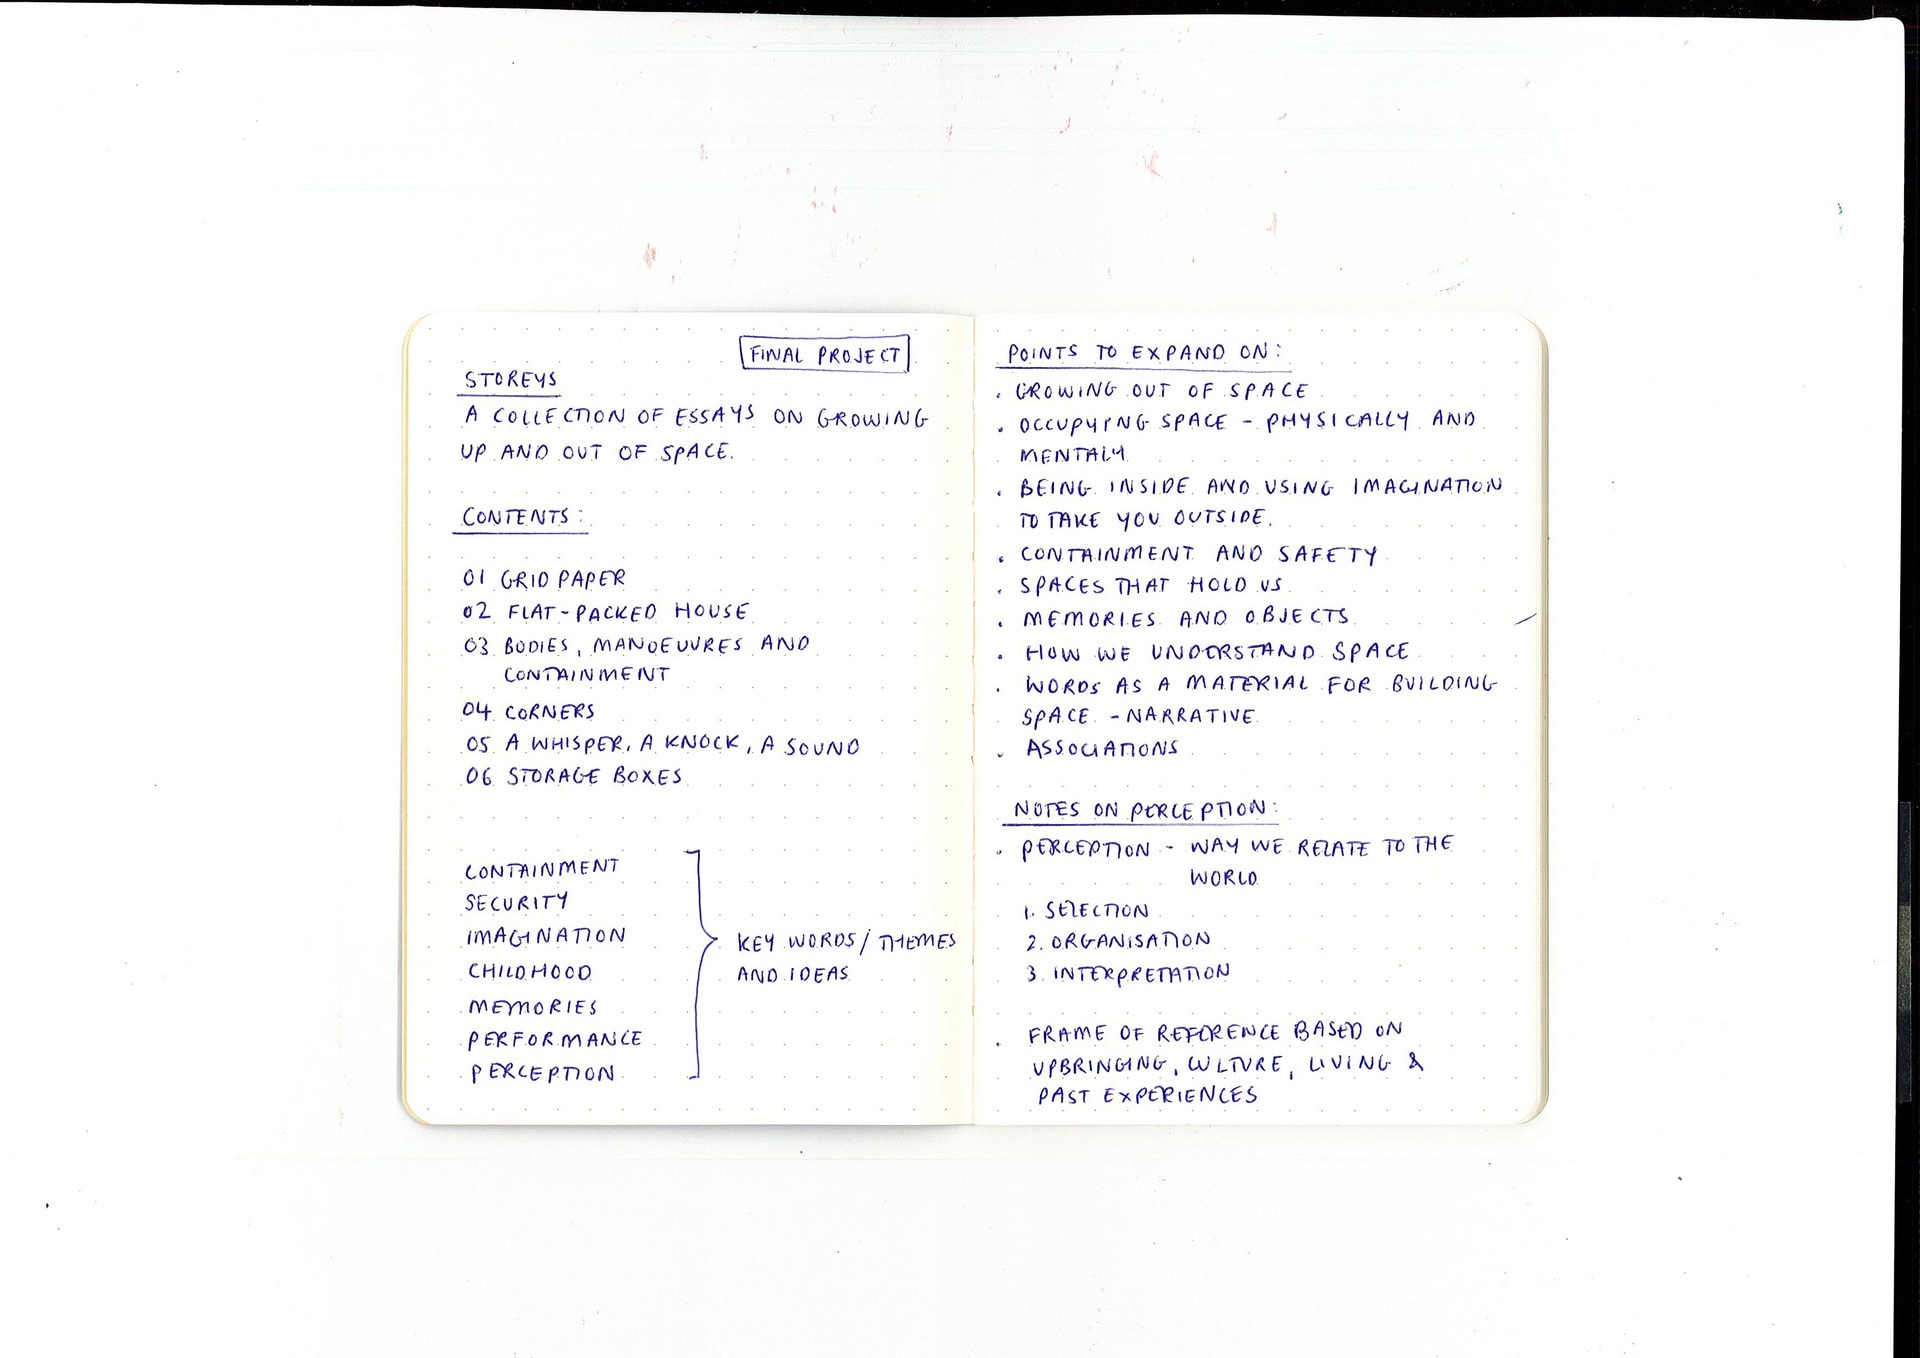 FINAL PROJECT
STOREYS
A COLLECTION OF ESSAYS ON GROWING
UP AND OUT OF SPACE.
CONTENTS:
01 GRID PAPER
02 FLAT-PACKED HOUSE
03 BODIES, MANOEUVRES AND
CONTAINMENT
04 CORNERS
05 A WHISPER, A KNOCK, A SOUND
06 STORAGE BOXES
CONTAINMENT
SECURITY
IMAGINATION
CHILDHOOD
MEMORIES
PERFORMANCE
PERCEPTION
KEY WORDS/THEMES
AND IDEAS
POINTS TO EXPAND ON:
. GROWING OUT OF SPACE
. OCCUPYING SPACE - PHYSICALLY AND
MENTALY
. BEING INSIDE AND USING IMAGINATION
TO TAKE YOU OUTSIDE.
. CONTAINMENT AND SAFETY
. SPACES THAT HOLD US
. MEMORIES AND OBJECTS
. HOW WE UNDERSTAND SPACE
. WORDS AS A MATERIAL FOR BUILDING
SPACE - NARRATIVE
. ASSOCIATIONS
NOTES ON PERCEPTION:
. PERCEPTION - WAY WE RELATE TO THE
WORLD
1. SELECTION
2. ORGANISATION
3. INTERPRETATION
. FRAME OF REFERENCE BASED ON
UPBRINGING, CULTURE, LIVING &
PAST EXPERIENCES